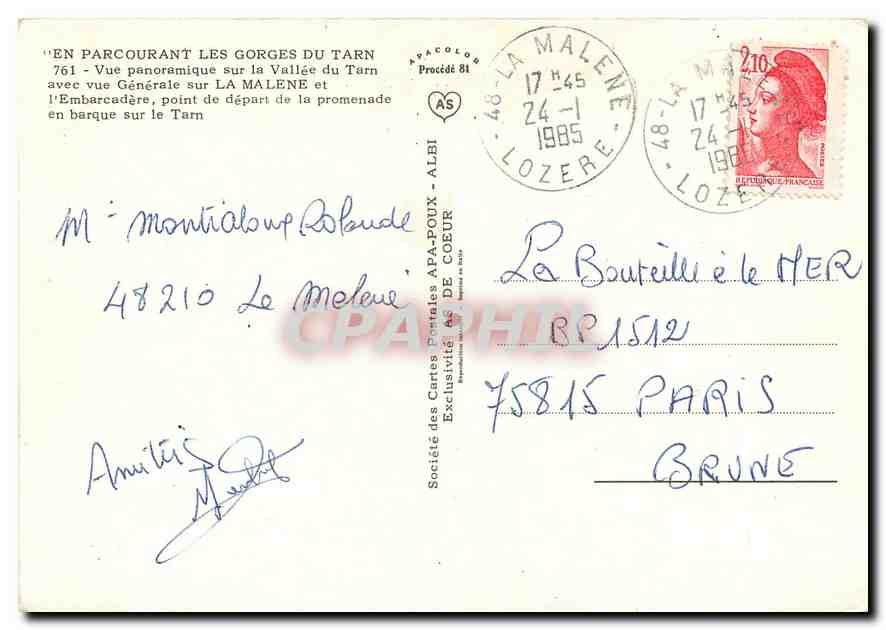 "EN PARCOURANT LES GORGES DU TARN
761 - Vue panoramique sur la Vallée du Tarn
avec vue Générale sur LA MALENE et
l'Embarcadère, point de départ de la promenade
en barque sur le Tarn
APACOLOR
Procédé 81
AS
48-LA MALENE
17 H -45
24 -1
1985
LOZERE
48-LA MA
17 H -45
24 -
1985
LOZERE
2,10
POSTES
REPUBLIQUE FRANÇAISE
Rolande
48210 La Malene
Amitiés
Société des Cartes Postales APA-POUX - ALBI
Exclusivité AS DE COEUR
Imprimé en Italie
CPAPHIL
La Bouteille à la MER
BP 1512
75815 PARIS
BRUNE